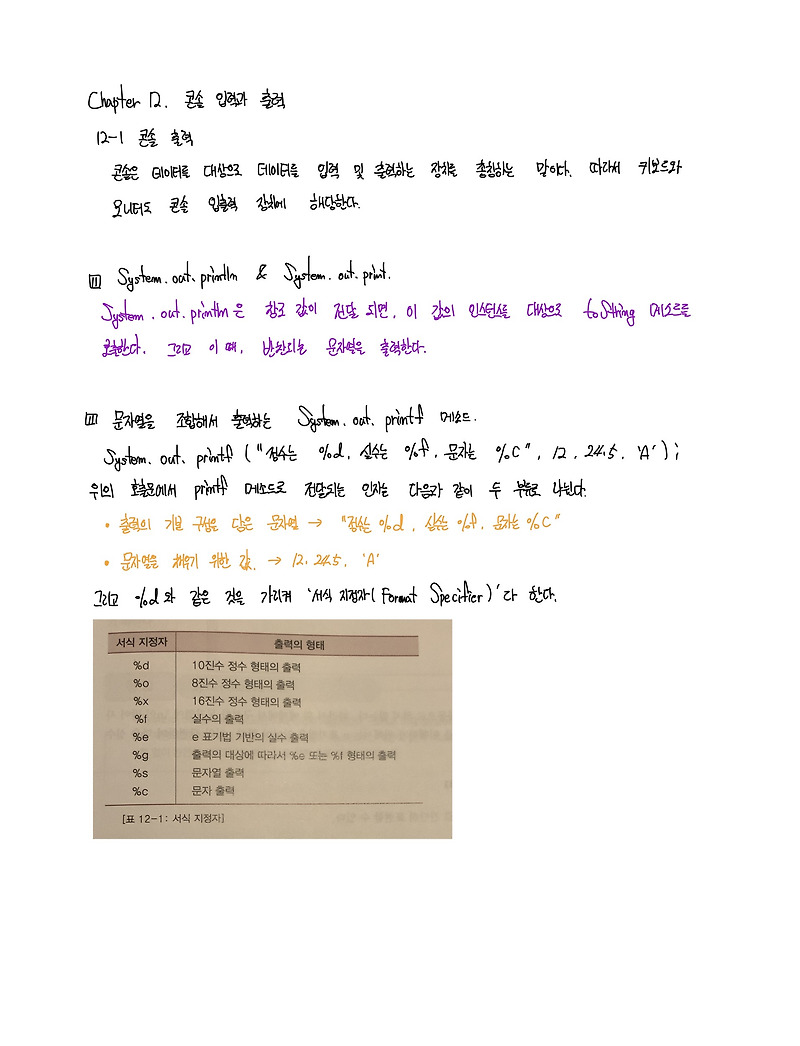 Chapter 12. 콘솔 입력과 출력
12-1 콘솔 출력
콘솔은 데이터를 대상으로 데이터를 입력 및 출력하는 장치를 총칭하는 말이다. 따라서 키보드와
모니터도 콘솔 입출력 장치에 해당한다.
System.out.println & System.out.print.
System.out.println은 참조 값이 전달 되면, 이 값의 인스턴스를 대상으로 toString 메소드를
호출한다. 그리고 이 때, 반환되는 문자열을 출력한다.
문자열을 조합해서 출력하는 System.out.printf 메소드.
System.out.printf("정수는 %d, 실수는 %f, 문자는 %C", 12, 24.5, 'A');
위의 호출문에서 printf 메소드로 전달되는 인자는 다음과 같이 두 부류로 나뉜다.
• 출력의 기본 구성을 담은 문자열 → "정수는 %d, 실수는 %f, 문자는 %C"
• 문자열을 채우기 위한 값. → 12, 24.5, 'A'
그리고 %d와 같은 것을 가리켜 '서식 지정자(Format Specifier)'다 한다.
서식 지정자 출력의 형태
%d 10진수 정수 형태의 출력
%o 8진수 정수 형태의 출력
%x 16진수 정수 형태의 출력
%f 실수의 출력
%e e 표기법 기반의 실수 출력
%g 출력의 대상에 따라서 %e 또는 %f 형태의 출력
%s 문자열 출력
%c 문자 출력
[표 12-1: 서식 지정자]